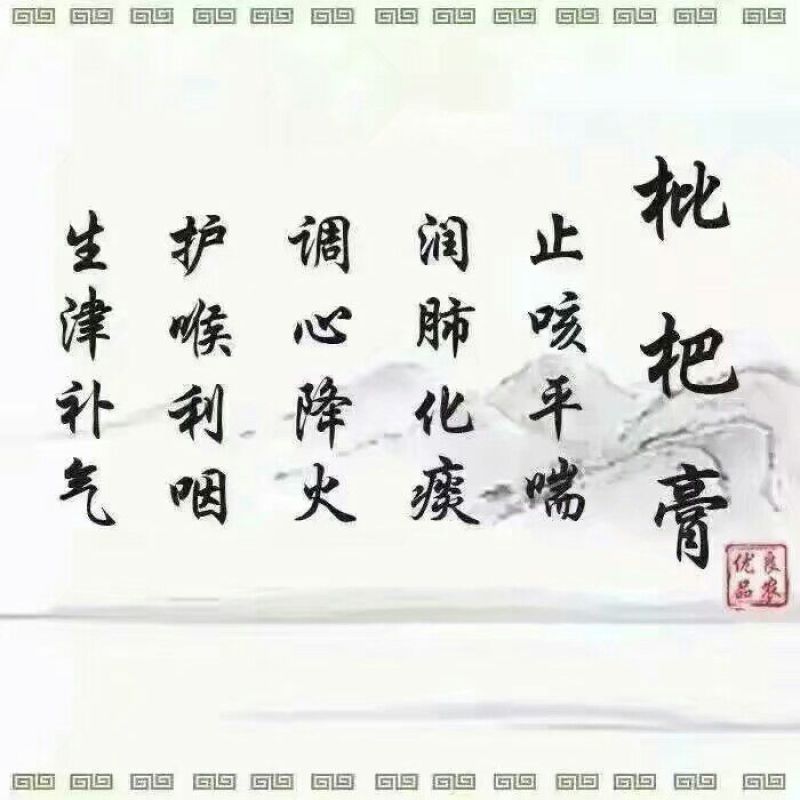 枇杷膏
止咳平喘
润肺化痰
调心降火
护喉利咽
生津补气
良农
优品